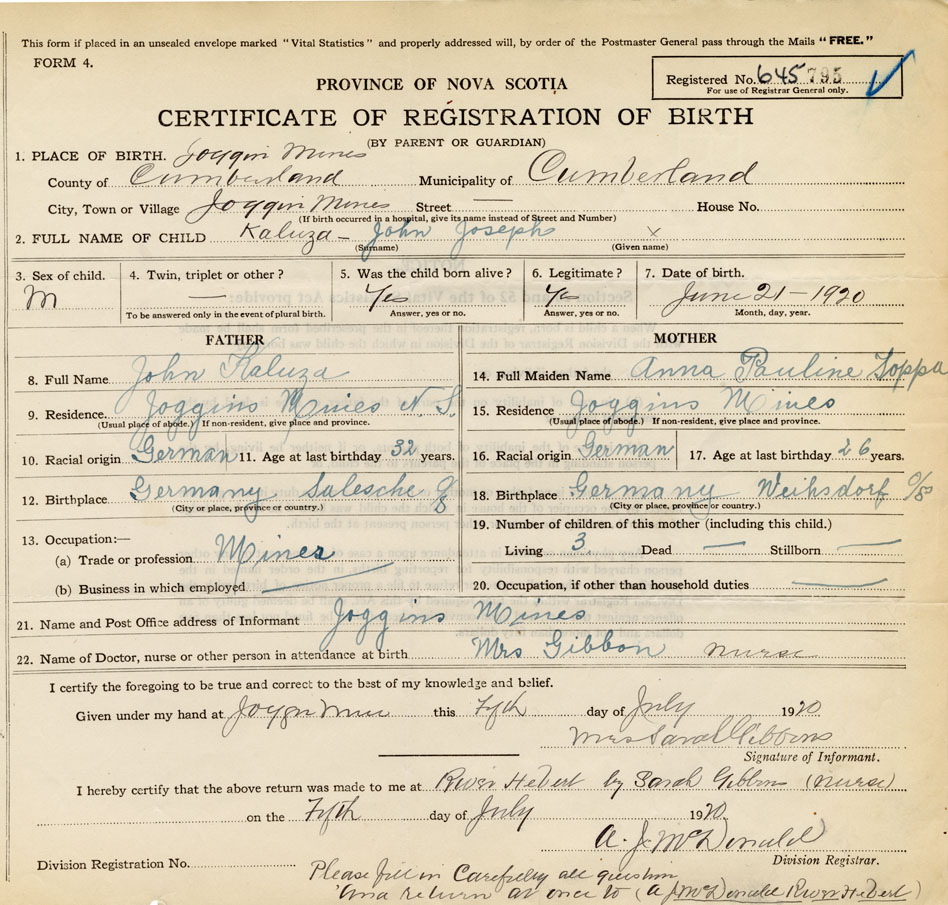 This form if placed in an unsealed envelope marked "Vital Statistics" and properly addressed will, by order of the Postmaster General pass through the Mails "FREE."
FORM 4.
Registered No. 645 795
For use of Registrar General only.
PROVINCE OF NOVA SCOTIA
CERTIFICATE OF REGISTRATION OF BIRTH
(BY PARENT OR GUARDIAN)
1. PLACE OF BIRTH. Joggin Mines
County of Cumberland Municipality of Cumberland
City, Town or Village Joggin Mines Street — House No.
(If birth occurred in a hospital, give its name instead of Street and Number)
2. FULL NAME OF CHILD Kaluza – John Joseph x
(Surname) (Given name)
3. Sex of child. 4. Twin, triplet or other? 5. Was the child born alive? 6. Legitimate? 7. Date of birth.
M — Yes Yes June 21 – 1920
To be answered only in the event of plural birth. Answer, yes or no. Answer, yes or no. Month, day, year.
FATHER
8. Full Name John Kaluza
9. Residence Joggins Mines N.S.
(Usual place of abode.) If non-resident, give place and province.
10. Racial origin German 11. Age at last birthday 32 years.
12. Birthplace Germany Salesche
(City or place, province or country.)
13. Occupation:—
(a) Trade or profession Miner
(b) Business in which employed —
MOTHER
14. Full Maiden Name Anna Pauline Zoppa
15. Residence Joggins Mines
(Usual place of abode.) If non-resident, give place and province.
16. Racial origin German 17. Age at last birthday 26 years.
18. Birthplace Germany Weihsdorf O/S
(City or place, province or country.)
19. Number of children of this mother (including this child.)
Living 3 Dead — Stillborn —
20. Occupation, if other than household duties —
21. Name and Post Office address of Informant Joggins Mines
22. Name of Doctor, nurse or other person in attendance at birth Mrs Gibbon nurse
I certify the foregoing to be true and correct to the best of my knowledge and belief.
Given under my hand at Joggin Mines this Fifth day of July 1920
Mrs Sarah Gibbons
Signature of Informant.
I hereby certify that the above return was made to me at River Hebert by Sarah Gibbons (nurse)
on the Fifth day of July 1920.
A. J. McDonald
Division Registrar.
Division Registration No.
Please fill in Carefully all question
and return at once to (A J McDonald River Hebert)